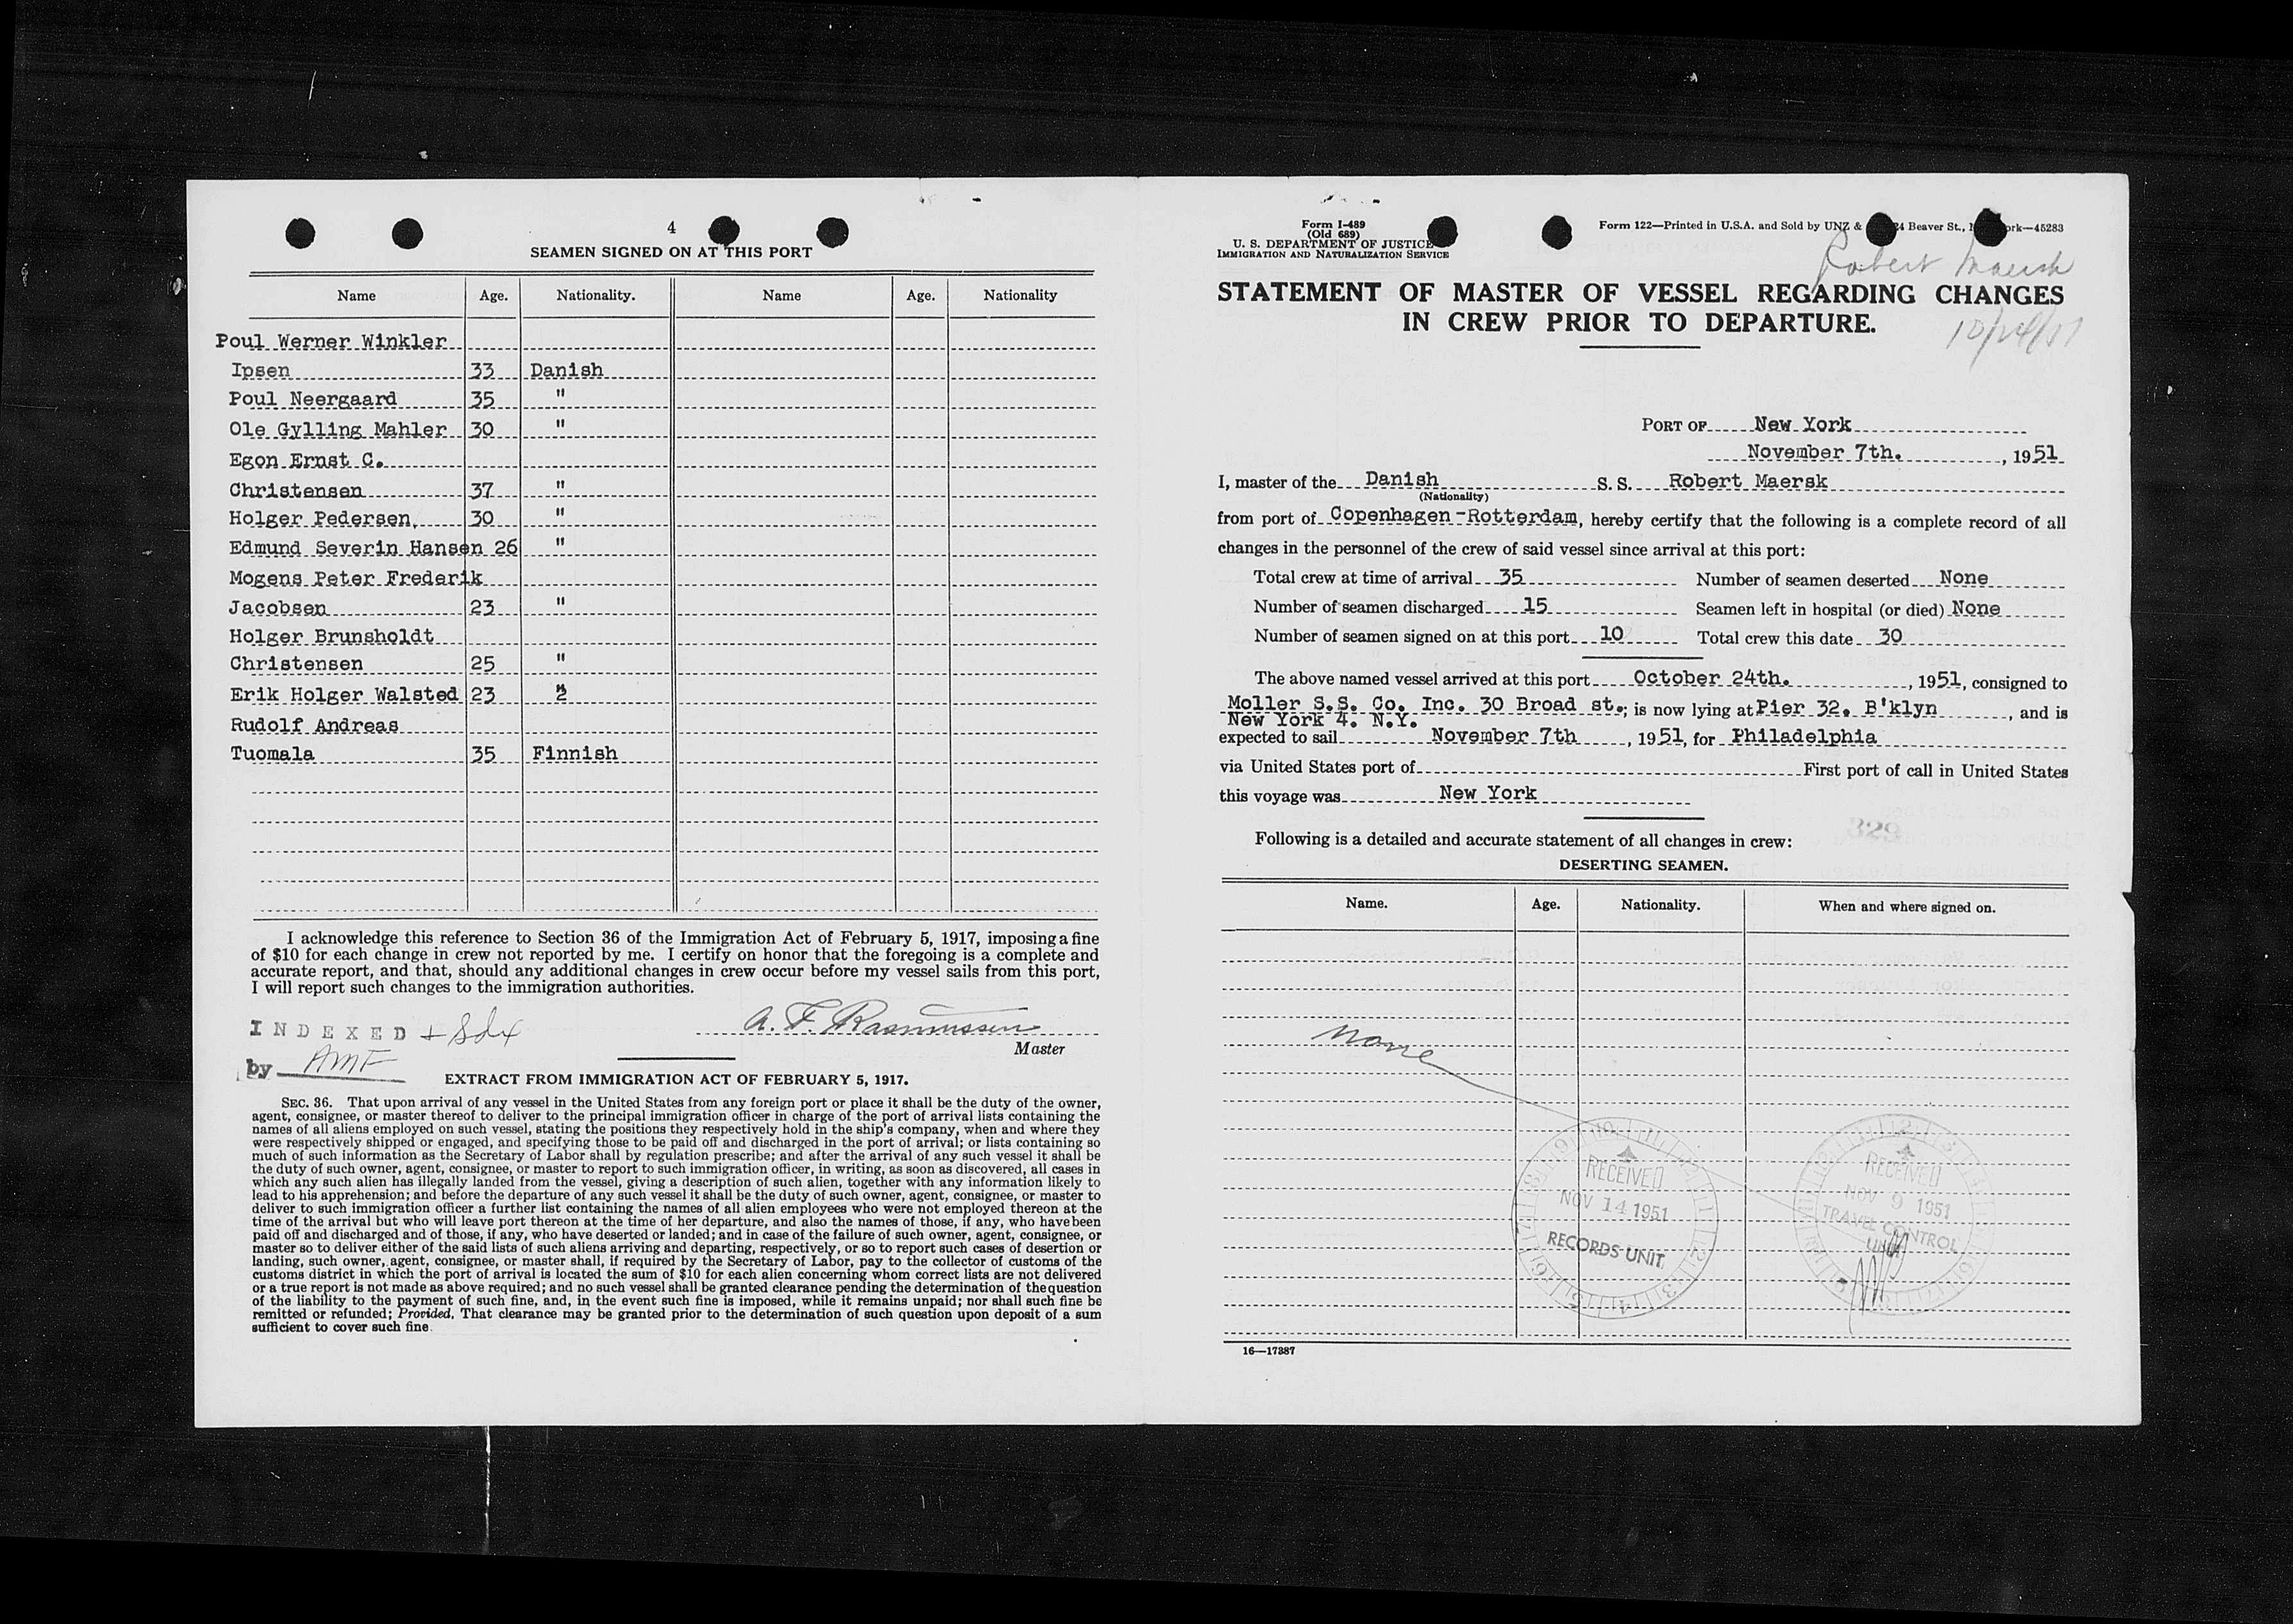 4
SEAMEN SIGNED ON AT THIS PORT
Name Age. Nationality. Name Age. Nationality
Poul Werner Winkler
Ipsen 33 Danish
Poul Neergaard 35 "
Ole Gylling Mahler 30 "
Egon Ernst C.
Christensen 37 "
Holger Pedersen, 30 "
Edmund Severin Hansen 26 "
Mogens Peter Frederik
Jacobsen 23 "
Holger Brunsholdt
Christensen 25 "
Erik Holger Walsted 23 "
Rudolf Andreas
Tuomala 35 Finnish
I acknowledge this reference to Section 36 of the Immigration Act of February 5, 1917, imposing a fine
of $10 for each change in crew not reported by me. I certify on honor that the foregoing is a complete and
accurate report, and that, should any additional changes in crew occur before my vessel sails from this port,
I will report such changes to the immigration authorities.
INDEXED
A. F. Rasmussen
Master
by AMF
EXTRACT FROM IMMIGRATION ACT OF FEBRUARY 5, 1917.
SEC. 36. That upon arrival of any vessel in the United States from any foreign port or place it shall be the duty of the owner,
agent, consignee, or master thereof to deliver to the principal immigration officer in charge of the port of arrival lists containing the
names of all aliens employed on such vessel, stating the positions they respectively hold in the ship's company, when and where they
were respectively shipped or engaged, and specifying those to be paid off and discharged in the port of arrival; or lists containing so
much of such information as the Secretary of Labor shall by regulation prescribe; and after the arrival of any such vessel it shall be
the duty of such owner, agent, consignee, or master to report to such immigration officer, in writing, as soon as discovered, all cases in
which any such alien has illegally landed from the vessel, giving a description of such alien, together with any information likely to
lead to his apprehension; and before the departure of any such vessel it shall be the duty of such owner, agent, consignee, or master to
deliver to such immigration officer a further list containing the names of all alien employees who were not employed thereon at the
time of the arrival but who will leave port thereon at the time of her departure, and also the names of those, if any, who have been
paid off and discharged and of those, if any, who have deserted or landed; and in case of the failure of such owner, agent, consignee, or
master so to deliver either of the said lists of such aliens arriving and departing, respectively, or so to report such cases of desertion or
landing, such owner, agent, consignee, or master shall, if required by the Secretary of Labor, pay to the collector of customs of the
customs district in which the port of arrival is located the sum of $10 for each alien concerning whom correct lists are not delivered
or a true report is not made as above required; and no such vessel shall be granted clearance pending the determination of the question
of the liability to the payment of such fine, and, in the event such fine is imposed, while it remains unpaid; nor shall such fine be
remitted or refunded; Provided, That clearance may be granted prior to the determination of such question upon deposit of a sum
sufficient to cover such fine.
Form I-489
(Old 689)
U. S. DEPARTMENT OF JUSTICE
IMMIGRATION AND NATURALIZATION SERVICE
Form 122—Printed in U.S.A. and Sold by UNZ & Beaver St., 45283
Robert Maersk
STATEMENT OF MASTER OF VESSEL REGARDING CHANGES
IN CREW PRIOR TO DEPARTURE.
10/24/51
PORT OF New York
November 7th. , 1951
I, master of the Danish S. S. Robert Maersk
(Nationality)
from port of Copenhagen-Rotterdam, hereby certify that the following is a complete record of all
changes in the personnel of the crew of said vessel since arrival at this port:
Total crew at time of arrival 35 Number of seamen deserted None
Number of seamen discharged 15 Seamen left in hospital (or died) None
Number of seamen signed on at this port 10 Total crew this date 30
The above named vessel arrived at this port October 24th. , 1951, consigned to
Moller S.S. Co. Inc. 30 Broad st.; is now lying at Pier 32. B'klyn , and is
New York 4. N.Y.
expected to sail November 7th , 1951, for Philadelphia
via United States port of First port of call in United States
this voyage was New York
329
Following is a detailed and accurate statement of all changes in crew:
DESERTING SEAMEN.
Name. Age. Nationality. When and where signed on.
None
RECEIVED
NOV 14 1951
RECORDS UNIT
RECEIVED
NOV 9 1951
TRAVEL CONTROL
UNIT
16—17387